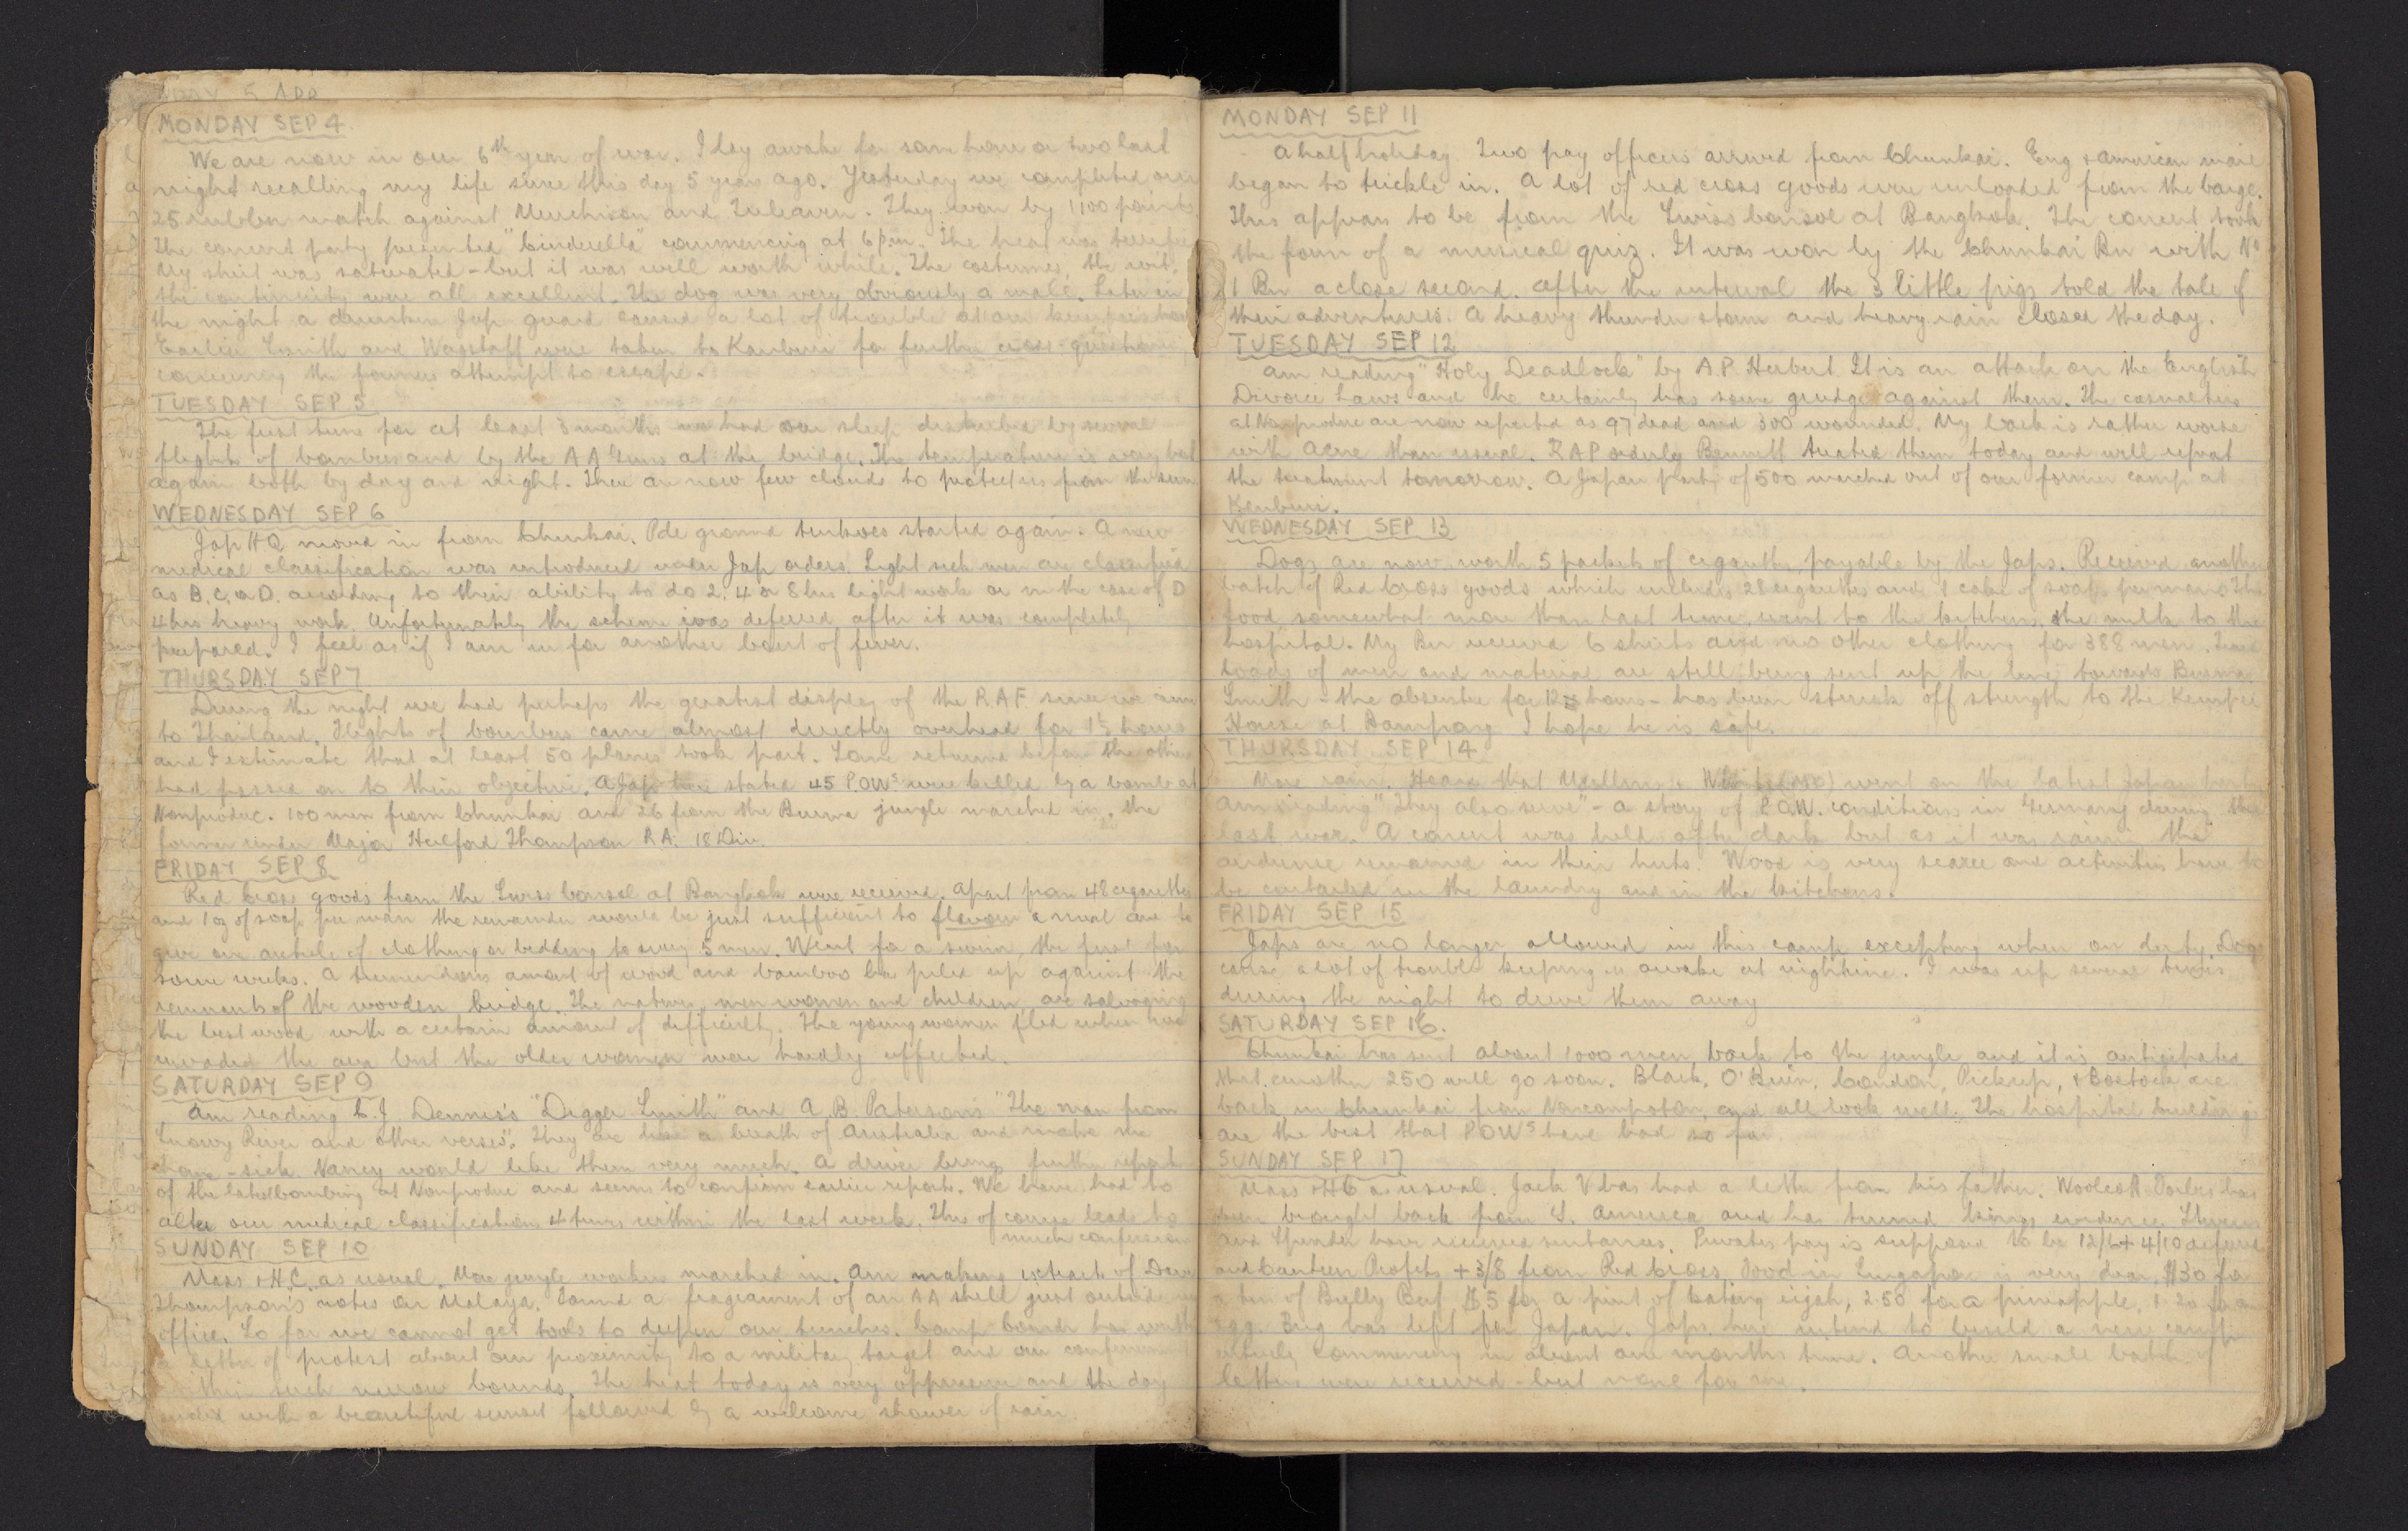 MONDAY SEP 4.
We are now in our 6th year of war. I lay awake for some hour or two last
night recalling my life since this day 5 years ago. Yesterday we completed our
25 rubber match against Murchison and. They won by 1100 points.
The concert party presented "Cinderella" commencing at 6 p.m. The heat was terrific
My shirt was saturated - but it was well worth while. The costumes, the wit,
the continuity were all excellent. The dog was very obviously a male. Later in
the night a drunken Jap guard caused a lot of trouble at our
Earlier Smith and Wagstaff were taken to Kanburi for further cross-question
concerning the formers attempt to escape.
TUESDAY SEP 5
The first time for at least 3 months we had our sleep disturbed by several
flights of bombers and by the AA Guns at the bridge. The temperature is very hot
again both by day and night. There are now few clouds to protect us from the sun
WEDNESDAY SEP 6
Jap HQ moved in from Chunkai. Pde ground tenkoes started again. A new
medical classification was introduced under Jap orders. Light sick men are classified
as B. C. or D. according to their ability to do 2, 4 or 8 hrs light work or in the case of D
4 hrs heavy work. Unfortunately the scheme was deferred after it was completely
prepared. I feel as if I am in for another bout of fever.
THURSDAY SEP 7
During the night we had perhaps the greatest display of the RAF since we came
to Thailand. Flights of bombers came almost directly overhead for 1½ hours
and I estimate that at least 50 planes took part. Some returned before the others
had passed on to their objective. A Jap here stated 45 POWs were killed by a bomb at
Nonproduc. 100 men from Chunkai and 26 from the Burma jungle marched in, the
former under Major Thompson RA. 18 Div.
FRIDAY SEP 8
Red Cross goods from the Swiss Consul at Bangkok were received. Apart from 48 cigarettes
and 1 oz of soap per man the remainder would be just sufficient to flavour a meal and to
give one article of clothing or bedding to every 5 men. Went for a swim, the first for
some weeks. A tremendous amount of wood and bamboo has piled up against the
remnants of the wooden bridge. The natives, men women and children, are salvaging
the best wood with a certain amount of difficulty. The young women fled when we
invaded the area but the older women were hardly affected.
SATURDAY SEP 9
Am reading C.J. Dennis's "Digger Smith" and A.B. Paterson's "The man from
Snowy River and other verses". They are like a breath of Australia and make me
home-sick. Nancy would like them very much. A driver brings further reports
of the latest bombing at Nonproduc and seems to confirm earlier reports. We have had to
alter our medical classification 4 times within the last week. This of course leads to
much confusion
SUNDAY SEP 10
Mass + H.C. as usual. More jungle workers marched in. Am making extracts of
Thompson's notes on Malaya. Found a fragment of an AA shell just outside my
office. So far we cannot get tools to deepen our trenches. Camp Comdr has written
a letter of protest about our proximity to a military target and our confinement
within such narrow bounds. The heat today is very oppressive and the day
ended with a beautiful sunset followed by a welcome shower of rain.
MONDAY SEP 11
A half holiday. Two pay officers arrived from Chunkai. Eng + American mail
began to trickle in. A lot of red cross goods were unloaded from the barge.
This appears to be from the Swiss Consul at Bangkok. The concert took
the form of a musical quiz. It was won by the Chunkai Bn with No
1 Bn a close second. After the interval the 3 little pigs told the tale of
their adventures. A heavy thunder storm and heavy rain closed the day.
TUESDAY SEP 12
Am reading "Holy Deadlock" by A.P. Herbert. It is an attack on the English
Divorce Laws and he certainly has some grudge against them. The casualties
at Nonproduc are now reported as 97 dead and 300 wounded. My back is rather worse
with acne than usual. RAP orderly Bennett treated them today and will repeat
the treatment tomorrow. A Japan party of 500 marched out of our former camp at
Kanburi.
WEDNESDAY SEP 13
Dogs are now worth 5 packets of cigarettes payable by the Japs. Received another
batch of Red Cross goods which includes 28 cigarettes and 1 cake of soap per man. The
food somewhat more than last time went to the kitchens, the milk to the
hospital. My Bn received 6 shirts and no other clothing for 388 men. Train
loads of men and material are still being sent up the line towards Burma.
Smith - the absentee for 12 hours - has been struck off strength to the Kempei
House at Bampong. I hope he is safe.
THURSDAY SEP 14
More rain. Heard that went on the latest Japan party
Am reading "They also serve" - a story of P.O.W. conditions in Germany during the
last war. A concert was held after dark but as it was raining the
audience remained in their huts. Wood is very scarce and activities have to
be curtailed in the laundry and in the kitchens.
FRIDAY SEP 15
Japs are no longer allowed in this camp excepting when on duty. Dogs
cause a lot of trouble keeping us awake at nightime. I was up several times
during the night to drive them away
SATURDAY SEP 16.
Chunkai has sent about 1000 men back to the jungle and it is anticipated
that another 250 will go soon. Black, O'Brien, Condon, Pickup, + Bostock are
back in Chunkai from and all look well. The hospital buildings
are the best that POWs have had so far.
SUNDAY SEP 17
Mass + HC as usual. Jack V has had a letter from his father. Woolcott Forbes has
been brought back from S. America and has turned kings evidence.
and have received sentances. Privates pay is supposed to be 12/6 + 4/10 deferred
and Canteen Profits + 3/8 from Red Cross. Food in Singapore is very dear, $30 for
a tin of Bully Beef, $5 for a pint of, 2.50 for a pineapple, 1.20 for an
egg. has left for Japan. Japs here intend to build a new camp
commencing in about one months time. Another small batch of
letters were received - but none for me.